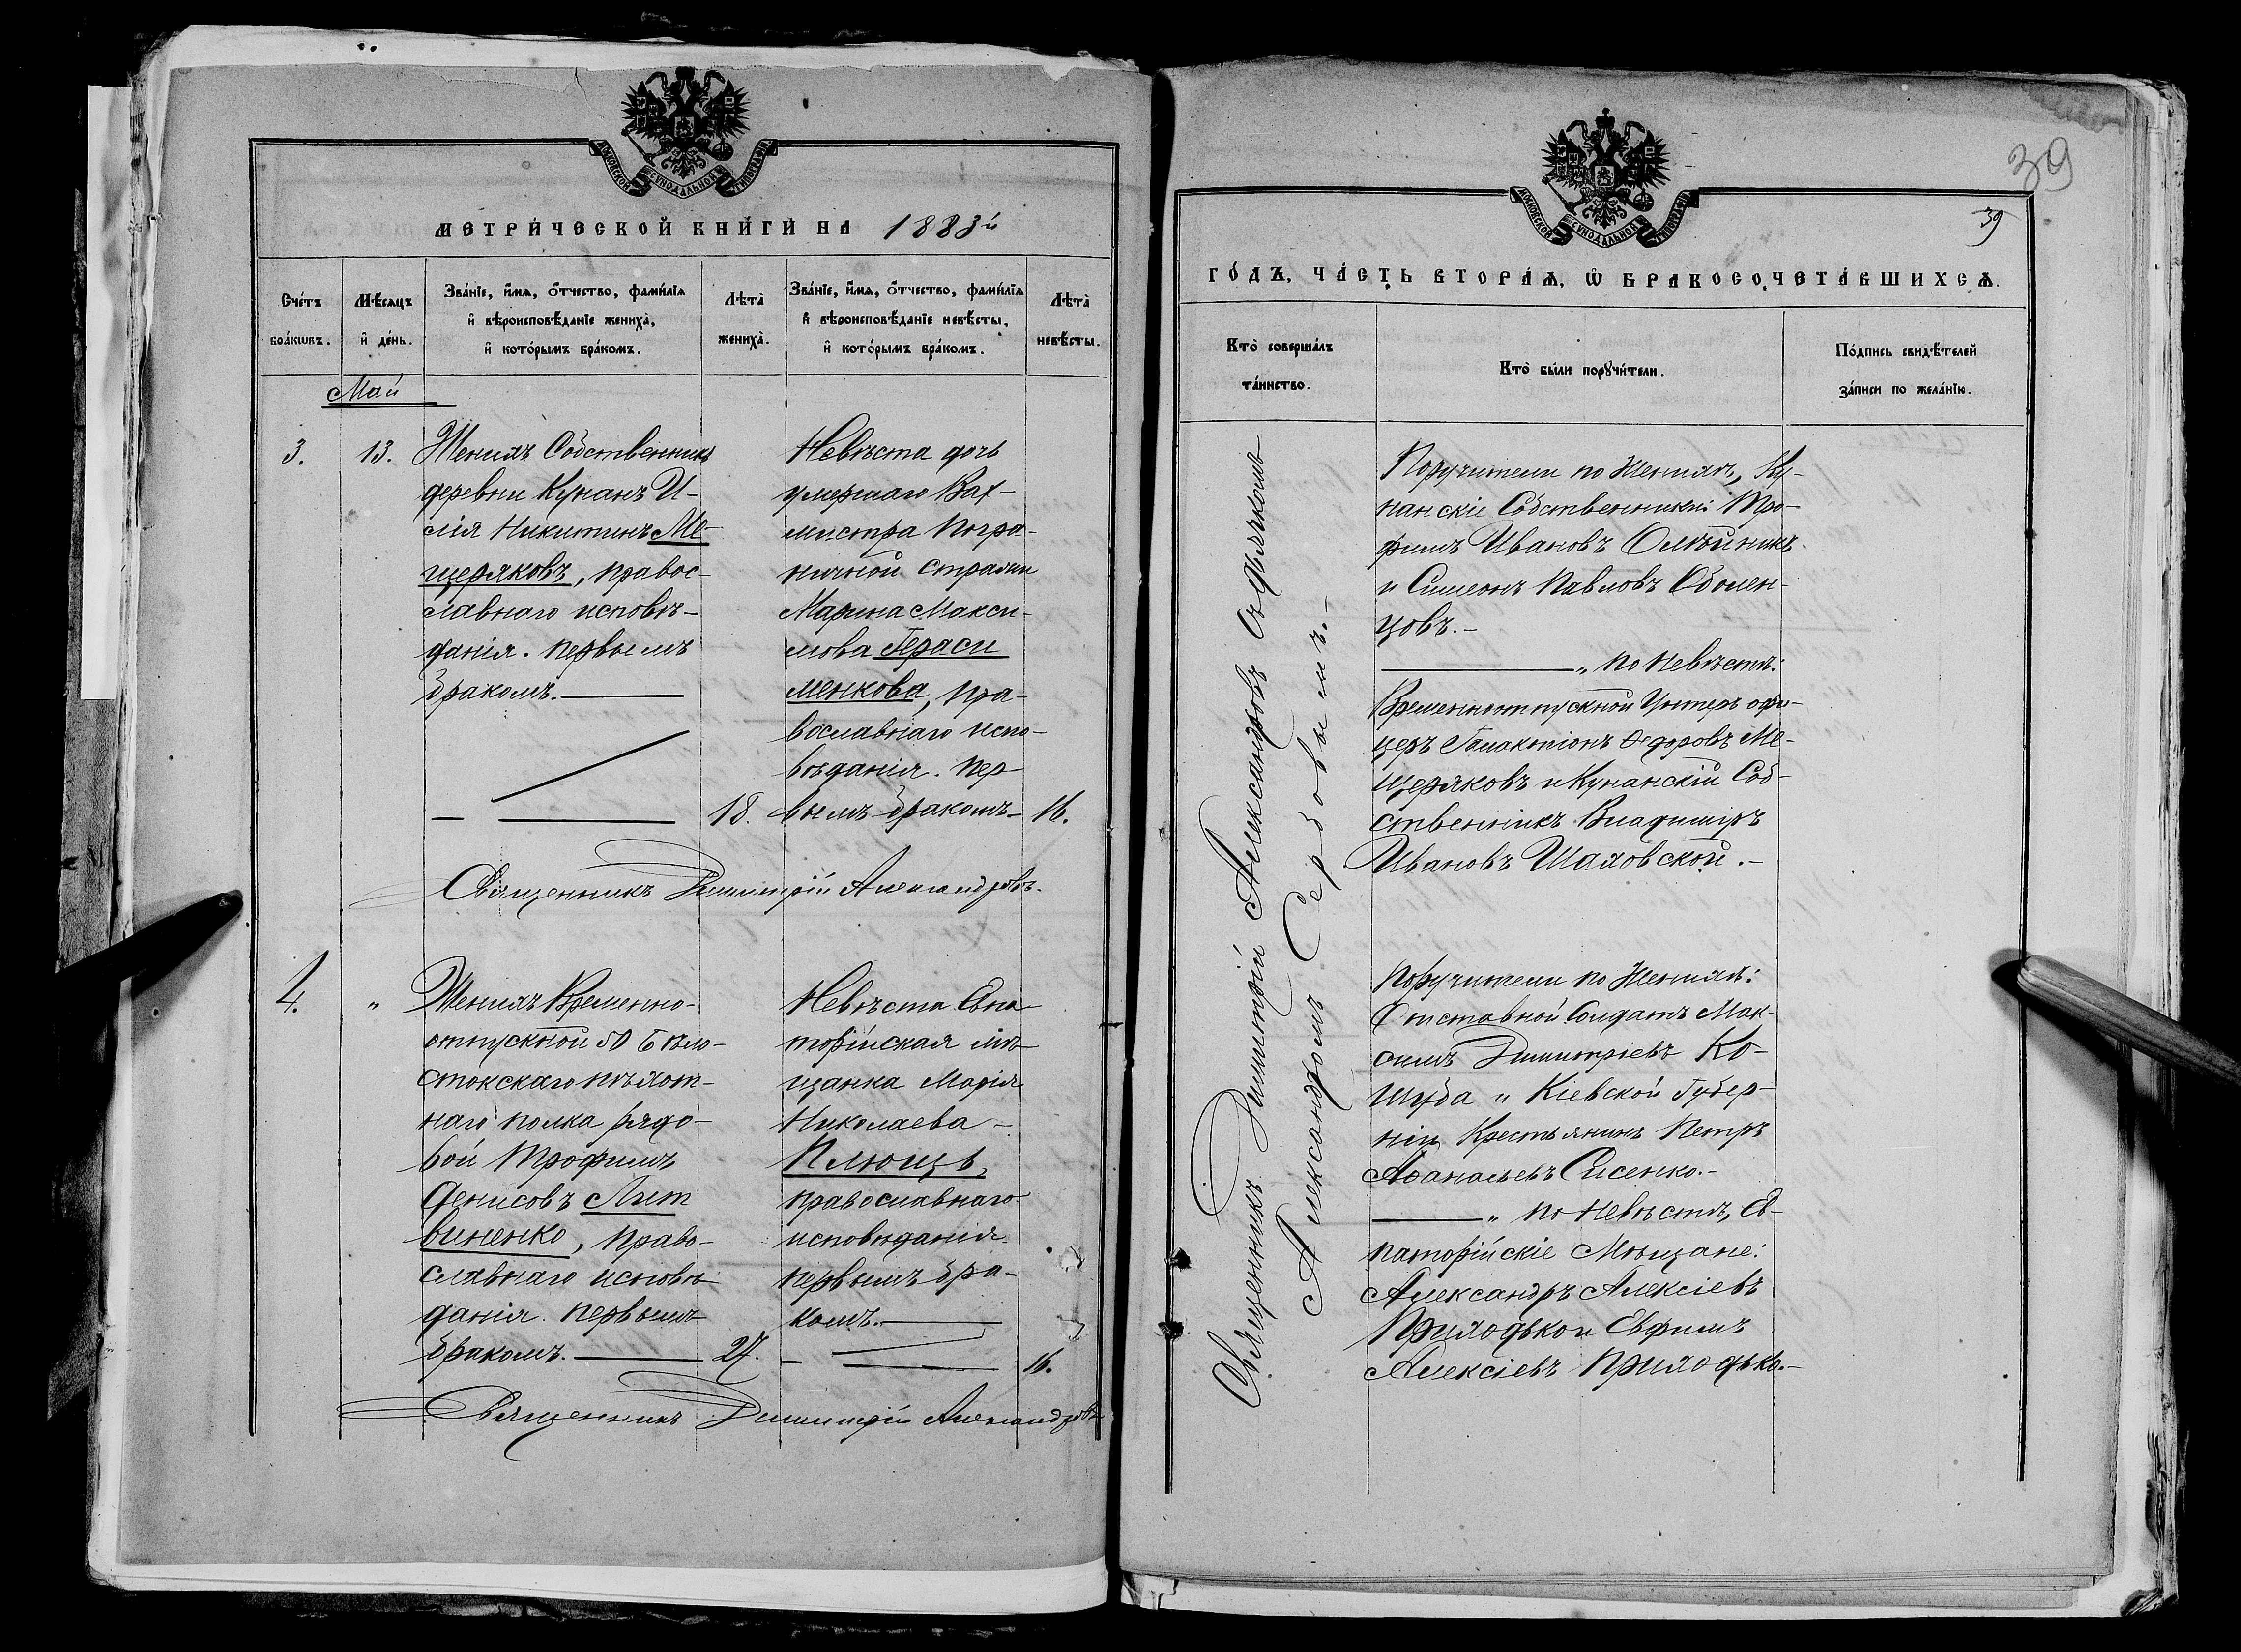 МОСКОВСКОЙ СѴНОДАЛЬНОЙ ТИПОГРАФІИ
МЕТРИ́ЧЕСКОЙ КНИ́ГИ НА 1883й
Сче́тъ бра́кѡвъ.
Мѣ́сяцъ и҆ де́нь.
Зва́нїе, и҆́мѧ, ѻ҆́тчество, фами́лїѧ
и҆ вѣроисповѣ́данїе жениха̀,
и҆ кото́рымъ бра́комъ.
Лѣта̀ жениха̀.
Зва́нїе, и҆́мѧ, ѻ҆́тчество, фами́лїѧ
и҆ вѣроисповѣ́данїе невѣ́сты,
и҆ кото́рымъ бра́комъ.
Лѣта̀ невѣ́сты.
Май
3.
13.
Женихъ Собственникъ
деревни Кунанъ И-
лія Никитинъ Ме-
щеряковъ, правос-
лавнаго исповѣ-
данія. первымъ
бракомъ.
18.
Невѣста дочь
умершаго Вах-
мистра Погра-
ничной Стражи
Марина Макси-
мова Гераси
менкова, пра-
вославнаго испо-
вѣданія. пер-
вымъ бракомъ
16.
Священникъ Димитрій Александровъ.
4.
"
Женихъ Временно-
отпускной 50 Бѣло-
стокскаго пѣхот-
наго полка рядо-
вой Трофимъ
Денисовъ Лит
виненко, право-
славнаго исповѣ
данія. первымъ
бракомъ.
27.
Невѣста Евпа
торійская мѣ-
щанка Марія
Николаева
Плющь,
православнаго
исповѣданія.
первымъ бра-
комъ.
16.
Священникъ Димитрій Александровъ
39
39
МОСКОВСКОЙ СѴНОДАЛЬНОЙ ТИПОГРАФІИ
ГО́ДЪ, ЧА́СТЬ ВТОРА́Ѧ, Ѡ҆ БРАКОСОЧЕТА́ВШИХСѦ.
Кто̀ соверша́лъ
та́инство.
Кто̀ бы́ли порꙋчи́тели.
По́дпись свидѣ́телей
за́писи по жела́нїю.
Священникъ Димитрій Александровъ Съ дьячкомъ
Александромъ Сербовымъ.-
Поручители по Женихѣ, Ку-
нанскіе Собственники: Тро-
фимъ Ивановъ Олѣйникъ
и Симеонъ Павловъ Оболен-
цовъ.-
" по Невѣстѣ:
Временноотпускной Унтеръ офи-
церъ Галактіонъ Ѳедоровъ Ме-
щеряковъ и Кунанскій Соб-
ственникъ Владиміръ
Ивановъ Шаховской.-
Поручители по Женихѣ:
Отставной Солдатъ Мак-
симъ Димитріевъ Ко-
шуба " Кіевской Губер-
ніи Крестьянинъ Петръ
Аѳанасьевъ Лисенко.-
" по Невѣстѣ, Ев-
паторійскіе Мѣщане:
Александръ Алексіевъ
Приходько и Евфимъ
Алексіевъ Приходько.-